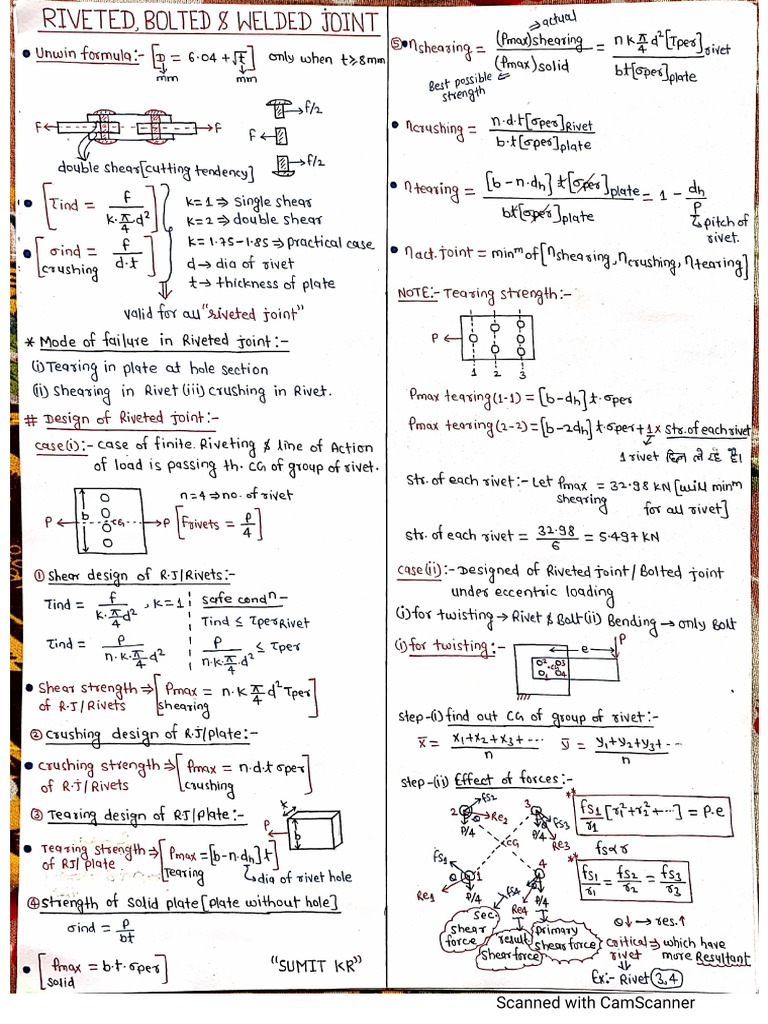 RIVETED, BOLTED & WELDED JOINT
• Unwin formula:- [D = 6.04 + √t] only when t ≥ 8mm
mm mm
F← →F
→f/2
F←
→f/2
double shear [cutting tendency]
• [τind = f / (k·π/4 d²)]
k=1 ⇒ single shear
k=2 ⇒ double shear
k=1.75-1.85 ⇒ practical case
• [σind = f / (d·t)]
crushing
d → dia of rivet
t → thickness of plate
valid for all "riveted joint"
* Mode of failure in Riveted joint:-
(i) Tearing in plate at hole section
(ii) Shearing in Rivet (iii) crushing in Rivet.
# Design of Riveted joint:-
case(i):- case of finite. Riveting & line of Action
of load is passing th. CG of group of rivet.
P← b CG →P
n=4 ⇒ no. of rivet
[Frivets = P/4]
① Shear design of R.J/Rivets:-
τind = f / (k·π/4 d²), k=1 | safe condⁿ-
τind ≤ τper Rivet
τind = P / (n·k·π/4 d²) | P / (n·k·π/4 d²) ≤ τper
• Shear strength ⇒ [Pmax = n·k π/4 d² τper]
of R.J/Rivets shearing
② Crushing design of R.J/plate:-
• crushing strength ⇒ [Pmax = n·d·t σper]
of R.J/Rivets crushing
③ Tearing design of RJ/plate:-
P← b t
• Tearing strength ⇒ [Pmax = [b-n·dh] t]
of RJ/plate Tearing ↳ dia of rivet hole
④ strength of solid plate [plate without hole]
σind = P / bt
• [Pmax = b·t·σper]
solid
"SUMIT KR"
⑤• ηshearing = (Pmax)shearing / (Pmax)solid = n k π/4 d² [τper]rivet / bt[σper]plate
→actual
Best possible strength
• ηcrushing = n·d·t[σper]Rivet / b·t[σper]plate
• ηtearing = [b-n·dh] t[σper]plate / bt[σper]plate = 1 - dh/P
↳ pitch of rivet.
• ηact. joint = minᵐ of [ηshearing, ηcrushing, ηtearing]
NOTE:- Tearing strength:-
P←
1 2 3
Pmax tearing (1-1) = [b-dh] t·σper
Pmax tearing (2-2) = [b-2dh] t·σper + 1 x str. of each rivet
1 rivet
str. of each rivet:- Let Pmax = 32.98 KN [will minᵐ
shearing for all rivet]
str. of each rivet = 32.98 / 6 = 5.497 KN
case(ii):- Designed of Riveted joint / Bolted joint
under eccentric loading
(i) for twisting → Rivet & Bolt (ii) Bending → only Bolt
(i) for twisting:-
e P
2 3
CG
1 4
step-(i) find out CG of group of rivet:-
x̄ = x₁+x₂+x₃+... / n ȳ = y₁+y₂+y₃+... / n
step-(ii) Effect of forces:-
2 fS2 Re2 P/4
3 fS3 Re3 P/4
CG
fS1 1 Re1 P/4
4 fS4 Re4 P/4
** fS1/r1 [r₁²+r₂²+...] = P.e
fs ∝ r
** fS1/r1 = fS2/r2 = fS3/r3
θ↓ → res.↑
sec. shear force
result shear force
primary shear force
critical rivet → which have more Resultant
Ex:- Rivet (3,4)
Scanned with CamScanner